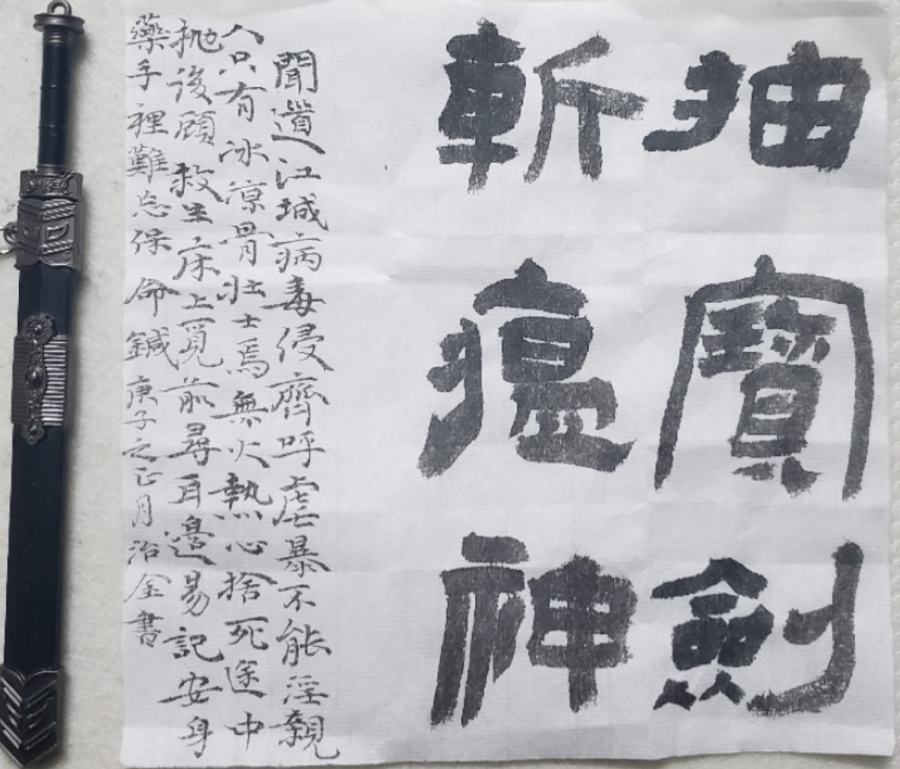 抽寶劍
斬瘟神
聞道江城病毒侵齊呼虐暴不能淫親
人只有冰涼骨壯士焉無火熱心捨死途中
拋後顧救生床上覓前尋耳邊易記安身
藥手裡難忘保命鍼庚子之正月治金書